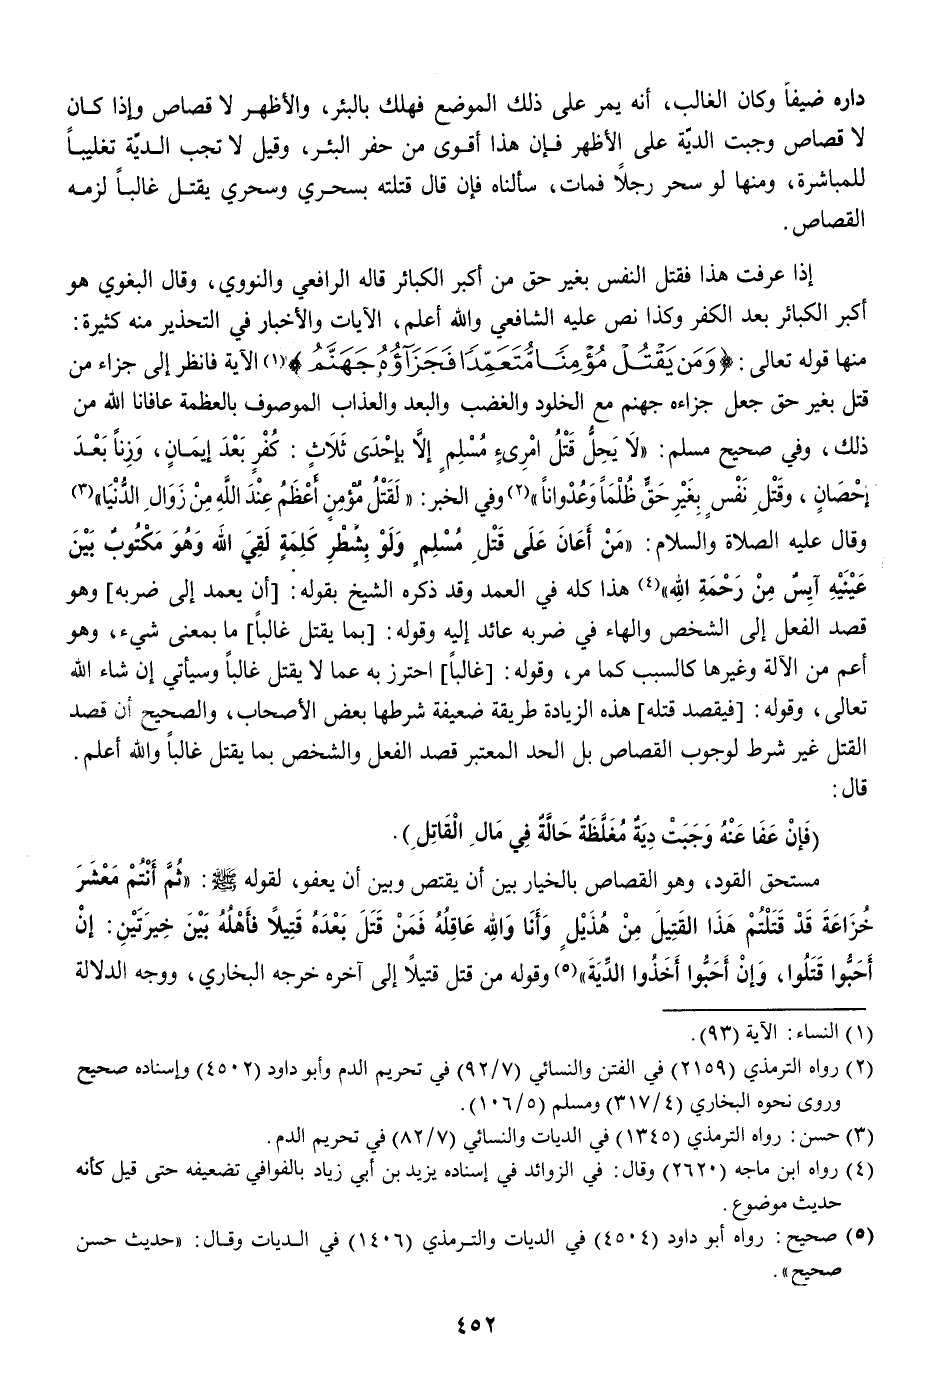 داره ضيفاً وكان الغالب، أنه يمر على ذلك الموضع فهلك بالبئر، والأظهر لا قصاص وإذا كان
لا قصاص وجبت الديّة على الأظهر فإن هذا أقوى من حفر البئر، وقيل لا تجب الديّة تغليباً
للمباشرة، ومنها لو سحر رجلاً فمات، سألناه فإن قال قتلته بسحري وسحري يقتل غالباً لزمه
القصاص.
إذا عرفت هذا فقتل النفس بغير حق من أكبر الكبائر قاله الرافعي والنووي، وقال البغوي هو
أكبر الكبائر بعد الكفر وكذا نص عليه الشافعي والله أعلم، الآيات والأخبار في التحذير منه كثيرة:
منها قوله تعالى: ﴿وَمَن يَقْتُلْ مُؤْمِنًا مُّتَعَمِّدًا فَجَزَآؤُهُ جَهَنَّمُ﴾(١) الآية فانظر إلى جزاء من
قتل بغير حق جعل جزاءه جهنم مع الخلود والغضب والبعد والعذاب الموصوف بالعظمة عافانا الله من
ذلك، وفي صحيح مسلم: «لَا يَحِلُّ قَتْلُ امْرِىءٍ مُسْلِمٍ إلَّا بِإحْدَى ثَلَاثٍ: كُفْرٍ بَعْدَ إيمَانٍ، وَزِناً بَعْدَ
إحْصَانٍ، وَقَتْلِ نَفْسٍ بِغَيْرِ حَقٍّ ظُلْمَاً وَعُدْوَاناً»(٢) وفي الخبر: «لَقَتْلُ مُؤْمِنٍ أَعْظَمُ عِنْدَ اللَّهِ مِنْ زَوَالِ الدُّنْيَا»(٣)
وقال عليه الصلاة والسلام: «مَنْ أَعَانَ عَلَى قَتْلِ مُسْلِمٍ وَلَوْ بِشَطْرِ كَلِمَةٍ لَقِيَ الله وَهُوَ مَكْتُوبٌ بَيْنَ
عَيْنَيْهِ آيِسٌ مِنْ رَحْمَةِ الله»(٤) هذا كله في العمد وقد ذكره الشيخ بقوله: [أن يعمد إلى ضربه] وهو
قصد الفعل إلى الشخص والهاء في ضربه عائد إليه وقوله: [بما يقتل غالباً] ما بمعنى شيء، وهو
أعم من الآلة وغيرها كالسبب كما مر، وقوله: [غالباً] احترز به عما لا يقتل غالباً وسيأتي إن شاء الله
تعالى، وقوله: [فيقصد قتله] هذه الزيادة طريقة ضعيفة شرطها بعض الأصحاب، والصحيح أن قصد
القتل غير شرط لوجوب القصاص بل الحد المعتبر قصد الفعل والشخص بما يقتل غالباً والله أعلم.
قال:
(فَإنْ عَفَا عَنْهُ وَجَبَتْ دِيَةٌ مُغَلَّظَةٌ حَالَّةٌ فِي مَالِ الْقَاتِلِ).
مستحق القود، وهو القصاص بالخيار بين أن يقتص وبين أن يعفو، لقوله ﷺ: «ثُمَّ أَنْتُمْ مَعْشَرَ
خُزَاعَةَ قَدْ قَتَلْتُمْ هَذَا القَتِيلَ مِنْ هُذَيْلٍ وَأَنَا وَالله عَاقِلُهُ فَمَنْ قَتَلَ بَعْدَهُ قَتِيلاً فَأهْلُهُ بَيْنَ خِيرَتَيْنِ: إنْ
أَحَبُّوا قَتَلُوا، وَإنْ أَحَبُّوا أَخَذُوا الدِّيَةَ»(٥) وقوله من قتل قتيلاً إلى آخره خرجه البخاري، ووجه الدلالة
(١) النساء: الآية (٩٣).
(٢) رواه الترمذي (٢١٥٩) في الفتن والنسائي (٩٢/٧) في تحريم الدم وأبو داود (٤٥٠٢) وإسناده صحيح
وروى نحوه البخاري (٣١٧/٤) ومسلم (١٠٦/٥).
(٣) حسن: رواه الترمذي (١٣٤٥) في الديات والنسائي (٨٢/٧) في تحريم الدم.
(٤) رواه ابن ماجه (٢٦٢٠) وقال: في الزوائد في إسناده يزيد بن أبي زياد بالفوافي تضعيفه حتى قيل كأنه
حديث موضوع.
(٥) صحيح: رواه أبو داود (٤٥٠٤) في الديات والترمذي (١٤٠٦) في الديات وقال: «حديث حسن
صحيح».
٤٥٢